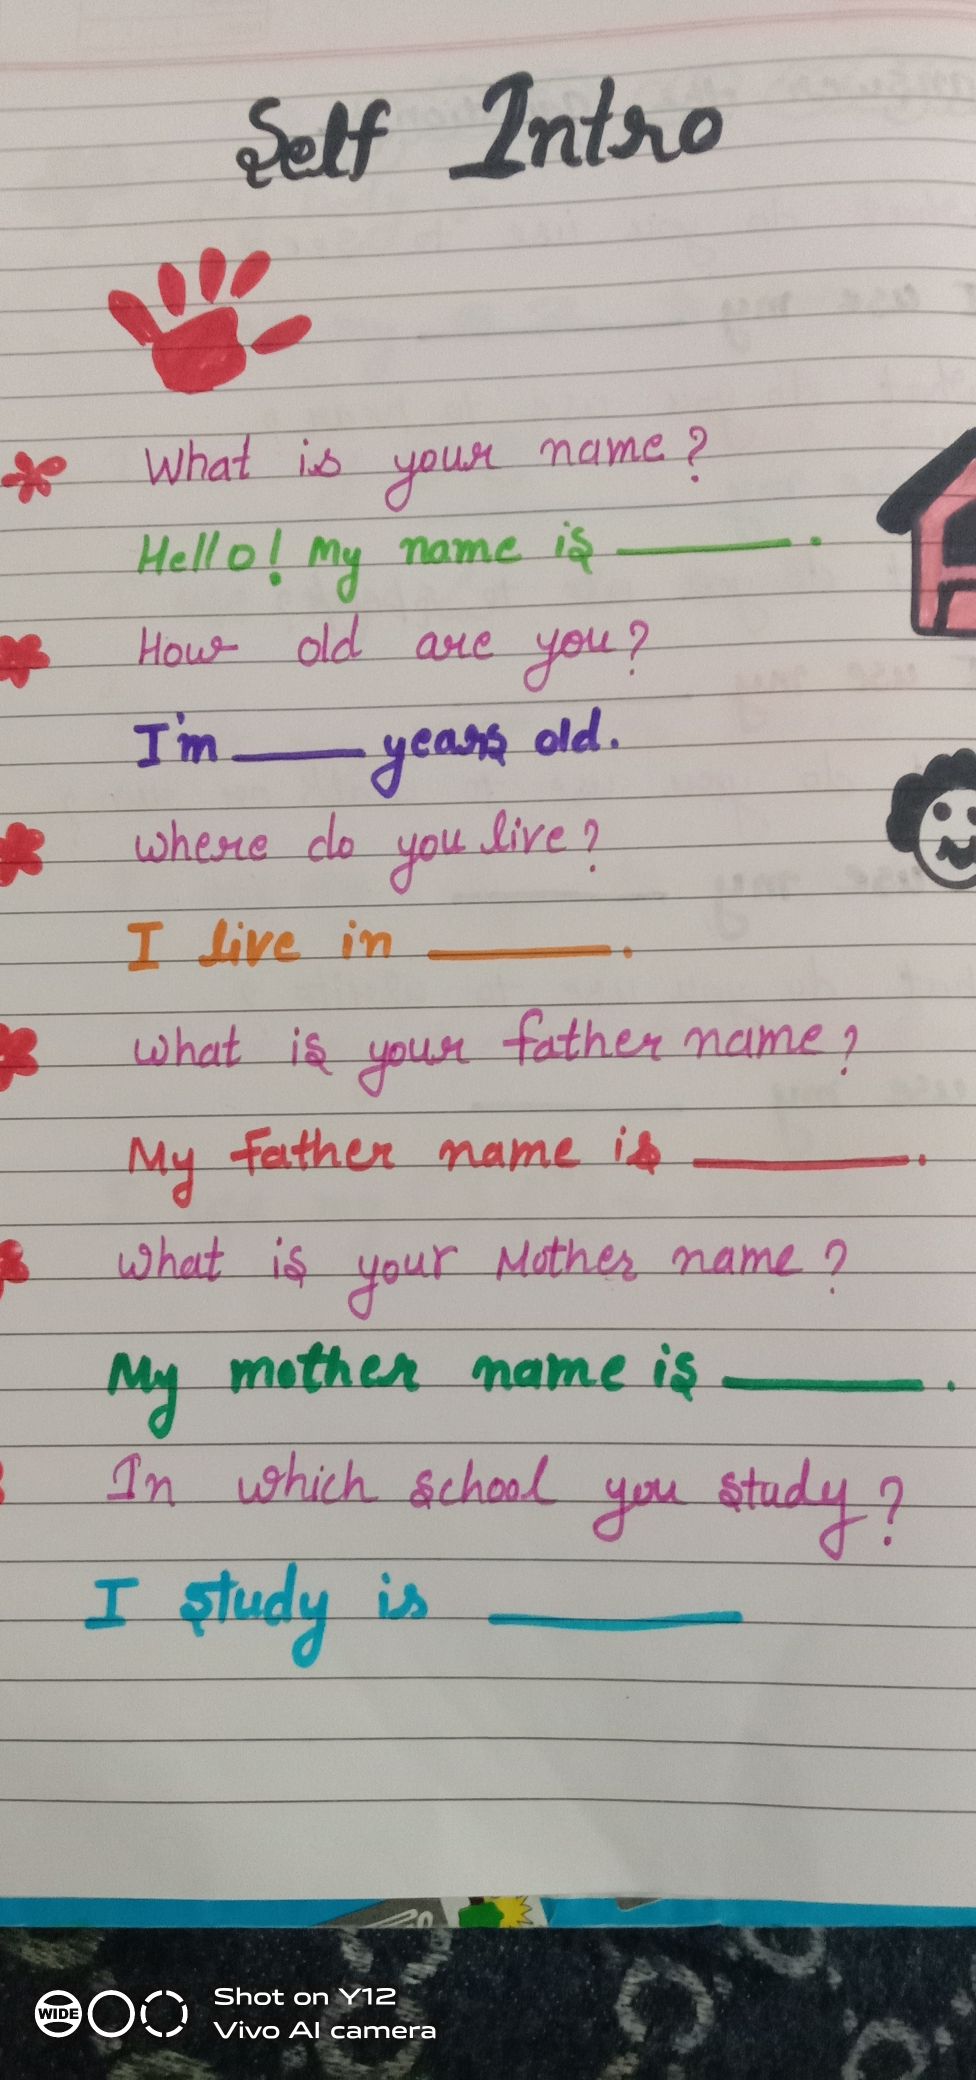 Self Intro
What is your name?
Hello! My name is ______.
How old are you?
I'm ____ years old.
where do you live?
I live in ______.
what is your father name?
My father name is ______.
what is your Mother name?
My mother name is ______.
In which school you study?
I study is ______
WIDE
Shot on Y12
Vivo AI camera